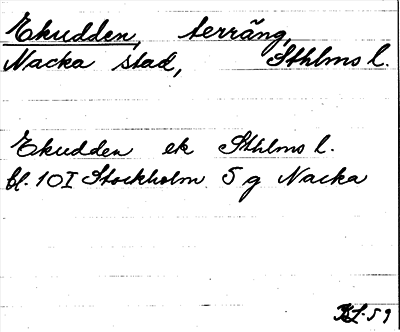 Ekudden, terräng,
Nacka stad, Sthlms l.
Ekudden ek Sthlms l.
bl. 10I Stockholm 5 g Nacka
59